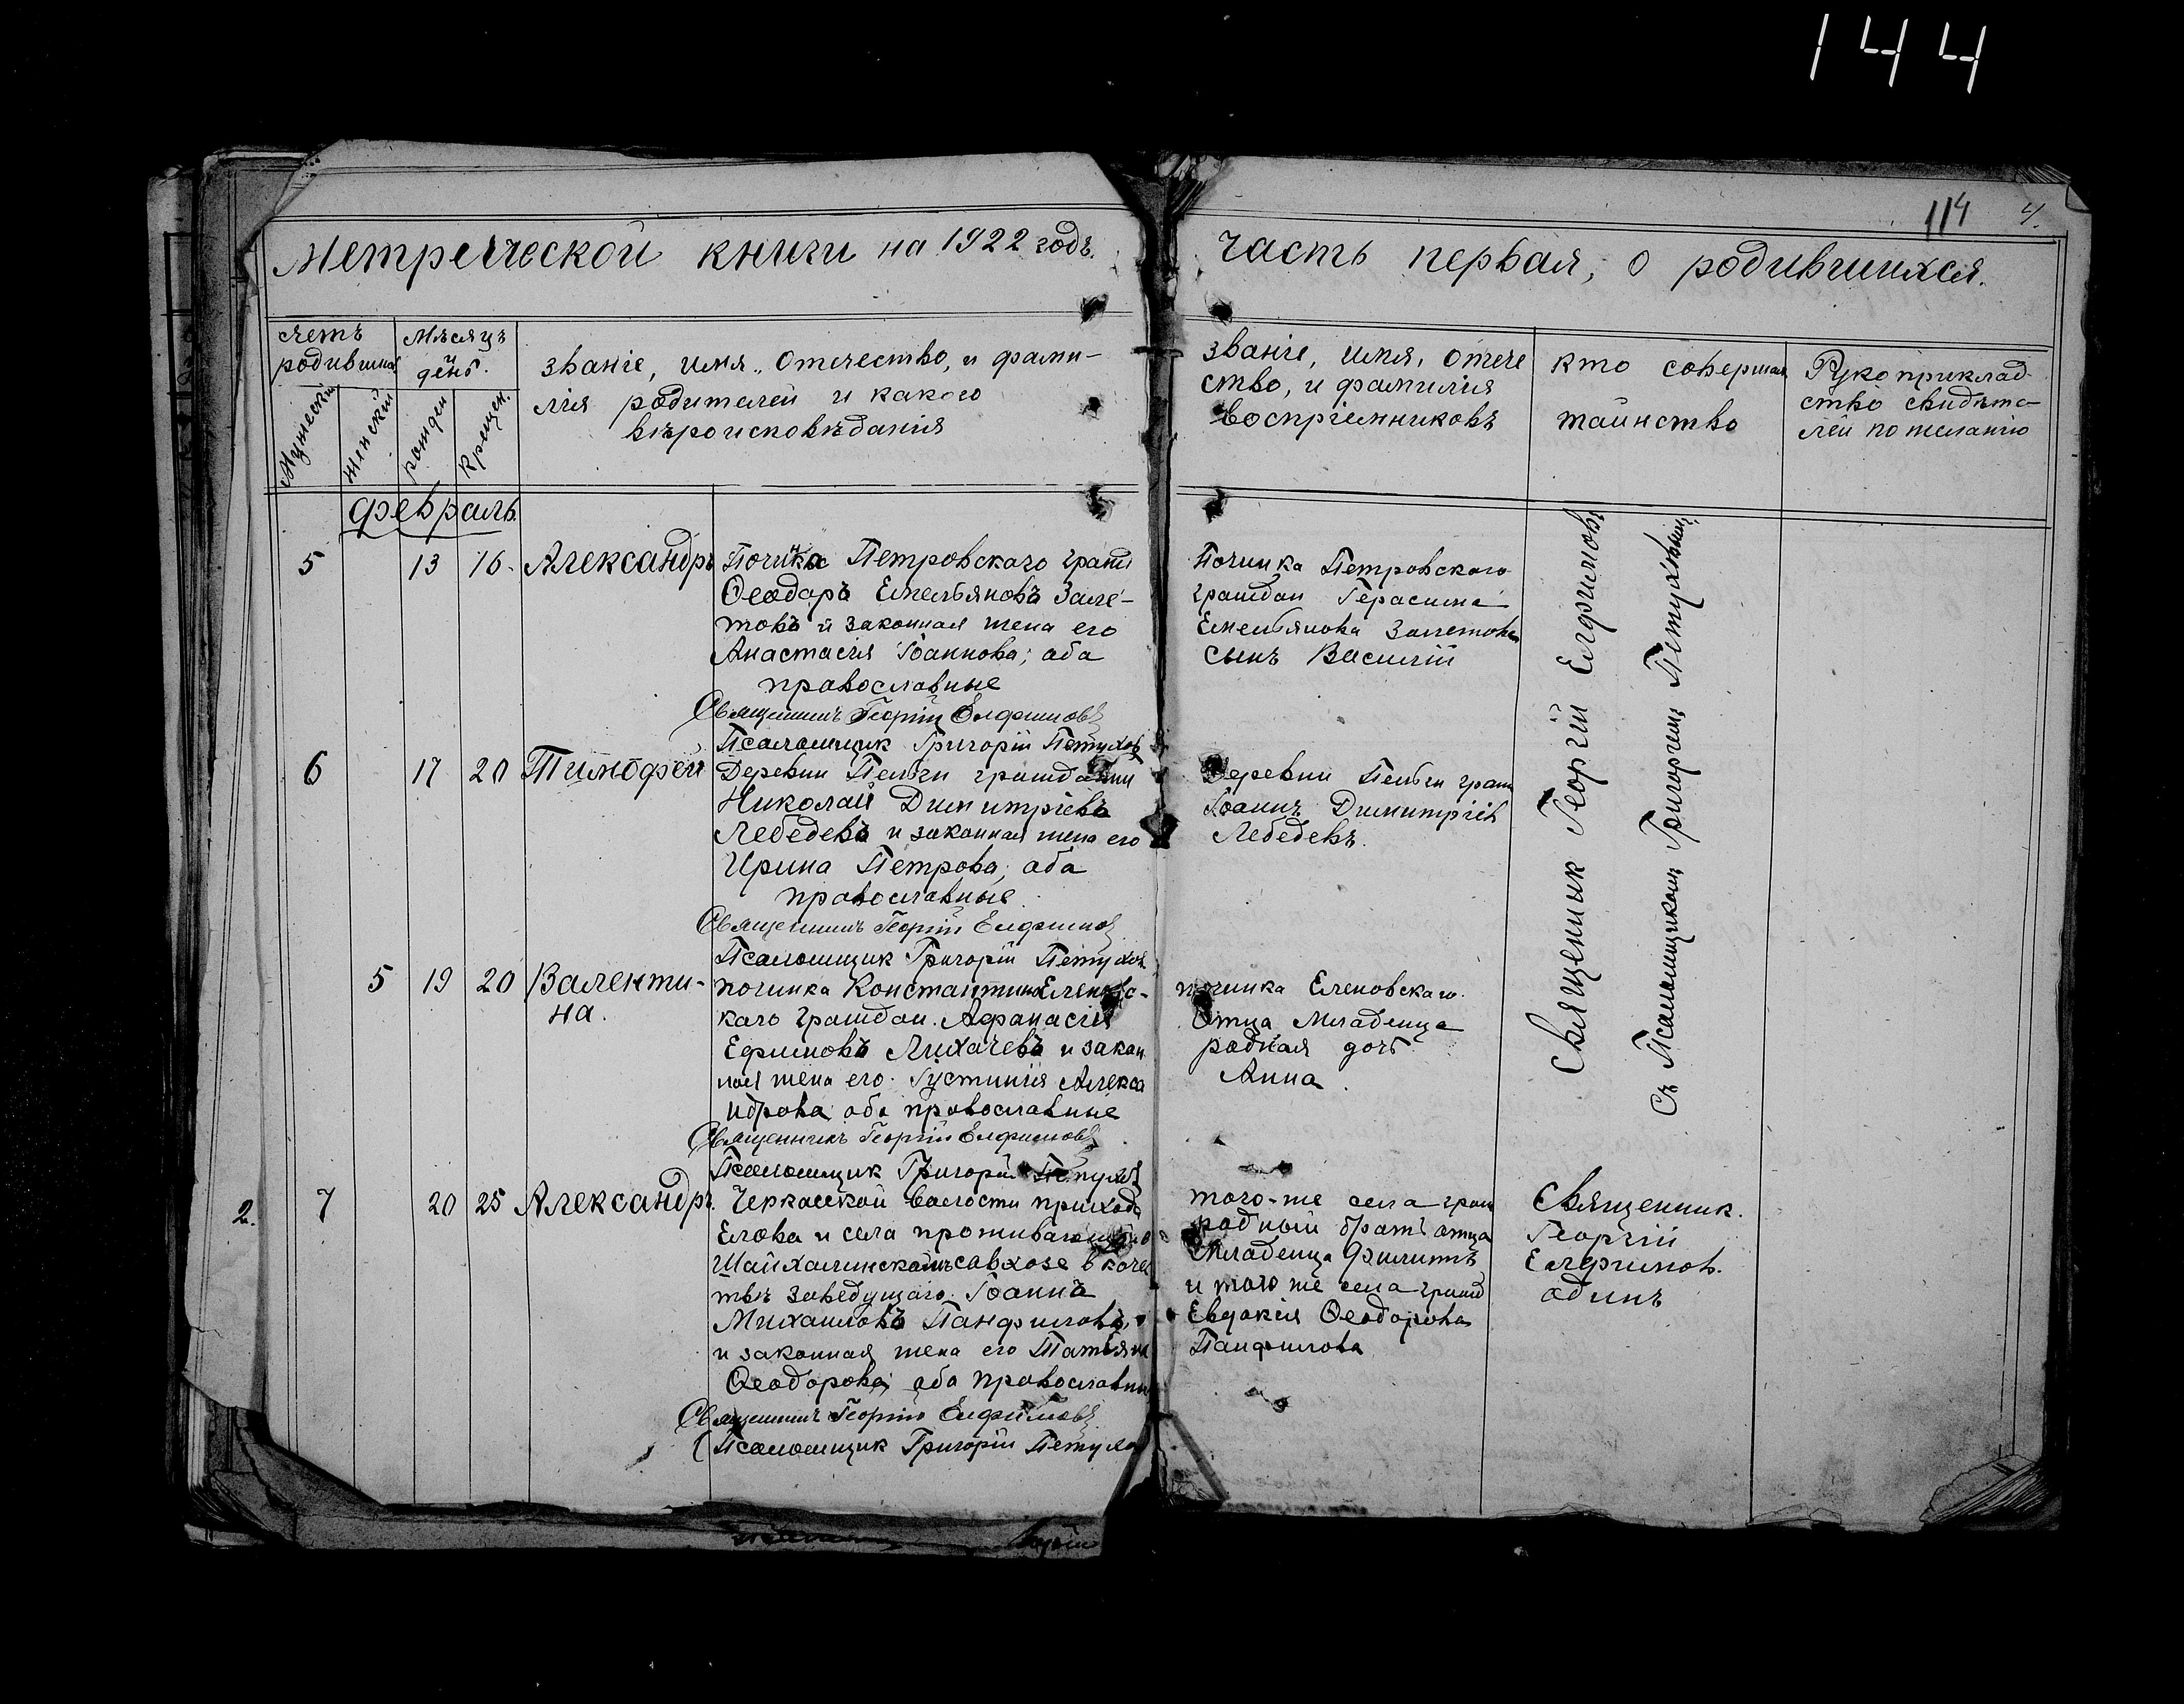 144
114 4.
Метрической книги на 1922 годъ.
часть первая, о родившихся.
счетъ родившихъ
Мѣсяцъ и день.
Мужескій
Женскій
рожден
Крещен.
званіе, имя, отчество, и фами-
лія родителей и какого
вѣроисповѣданія
званіе, имя, отече
ство, и фамилія
воспріемниковъ
кто совершал
таинство
Рукоприклад-
ство свидѣте-
лей по желанію
февраль.
5 13 16. Александръ
Починка Петровскаго гражд
Ѳеодоръ Емельяновъ Зале-
товъ и законная жена его
Анастасія Іоаннова; оба
православные
Священникъ Георгій Елфимовъ
Псаломщик Григорій Петухов
Починка Петровскаго
граждан Герасима
Емельянова Залетова
сынъ Василій
6 17 20 Тимофей
Деревни Пельги гражданин
Николай Димитріевъ
Лебедевъ и законная жена его
Ирина Петрова, оба
православные
Священникъ Георгій Елфимов
Псаломщик Григорій Петухов
Деревни Пельги граж
Іоаннъ Димитріев
Лебедевъ.
5 19 20 Валенти-
на.
починка Константино Еленовс-
каго граждан. Афанасія
Ефимовъ Лихачевъ и закон
ная жена его Іустинія Алекса
ндрова оба православные
Священникъ Георгій Елфимовъ
Псаломщик Григорій Петухов
починка Еленовскаго.
Отца Младенца
родная дочь
Анна.
Священник Георгій Елфимовъ
Съ Псаломщиком Григорием Петуховым
2. 7 20 25 Александръ.
Черкасской волости прихода
Елова и села проживающаго
Шайхалинскомъ совхозе в качес
твѣ заведущаго Іоаннъ
Михаиловъ Панфиловъ,
и законная жена его Татьяна
Ѳеодорова; оба православны
Священникъ Георгій Елфимовъ
Псаломщик Григорій Петухов
того-же села граж
родный братъ отца
Младенца Филиппъ
и того же села гражд
Евдокія Ѳеодорова
Панфилова
Священник.
Георгій
Елфимов.
один